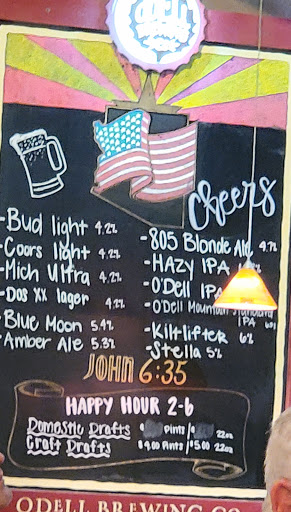 ODELL
BREWING
-Bud light 4.2%
-Coors light 4.2%
-Mich Ultra 4.2%
-Dos XX lager 4.2%
-Blue Moon 5.4%
-Amber Ale 5.3%
Cheers
-805 Blonde Ale 4.7%
-HAZY IPA
-O'Dell IPA
-O'Dell Mountain Standard
IPA
-Kiltlifter 6%
-Stella 5%
JOHN 6:35
HAPPY HOUR 2-6
Domestic Drafts $ Pints/$ 22oz
Craft Drafts $4.00 Pints/$5.00 22oz
ODELL BREWING CO.